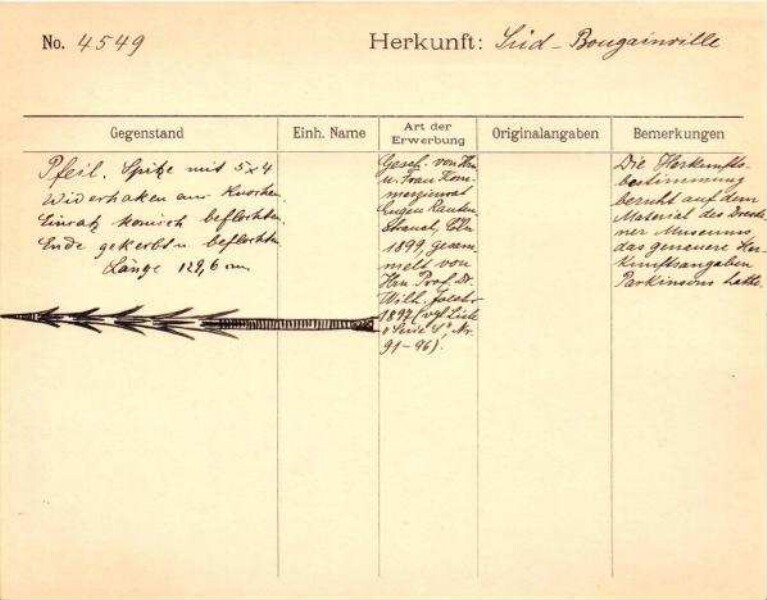 No. 4549
Herkunft: Süd - Bougainville
Gegenstand
Einh. Name
Art der
Erwerbung
Originalangaben
Bemerkungen
Pfeil. Spitze mit 5x4
Widerhaken aus Knochen.
Einsatz konisch beflochten.
Ende gekerbt u beflochten
Länge 129,6 cm
Gesch. von Hn
u. Frau Kom-
merzienrat
Eugen Rauten-
strauch, Cöln
1899, gesam-
melt von
Hn Prof. Dr.
Wilh. Joest
1897 (vgl Liste
"Serie 4", Nr.
91-96).
Die Herkunfts-
bestimmung
beruht auf dem
Material des Dresde-
ner Museums,
das genauere Her-
kunftsangaben
Parkinsons hatte.